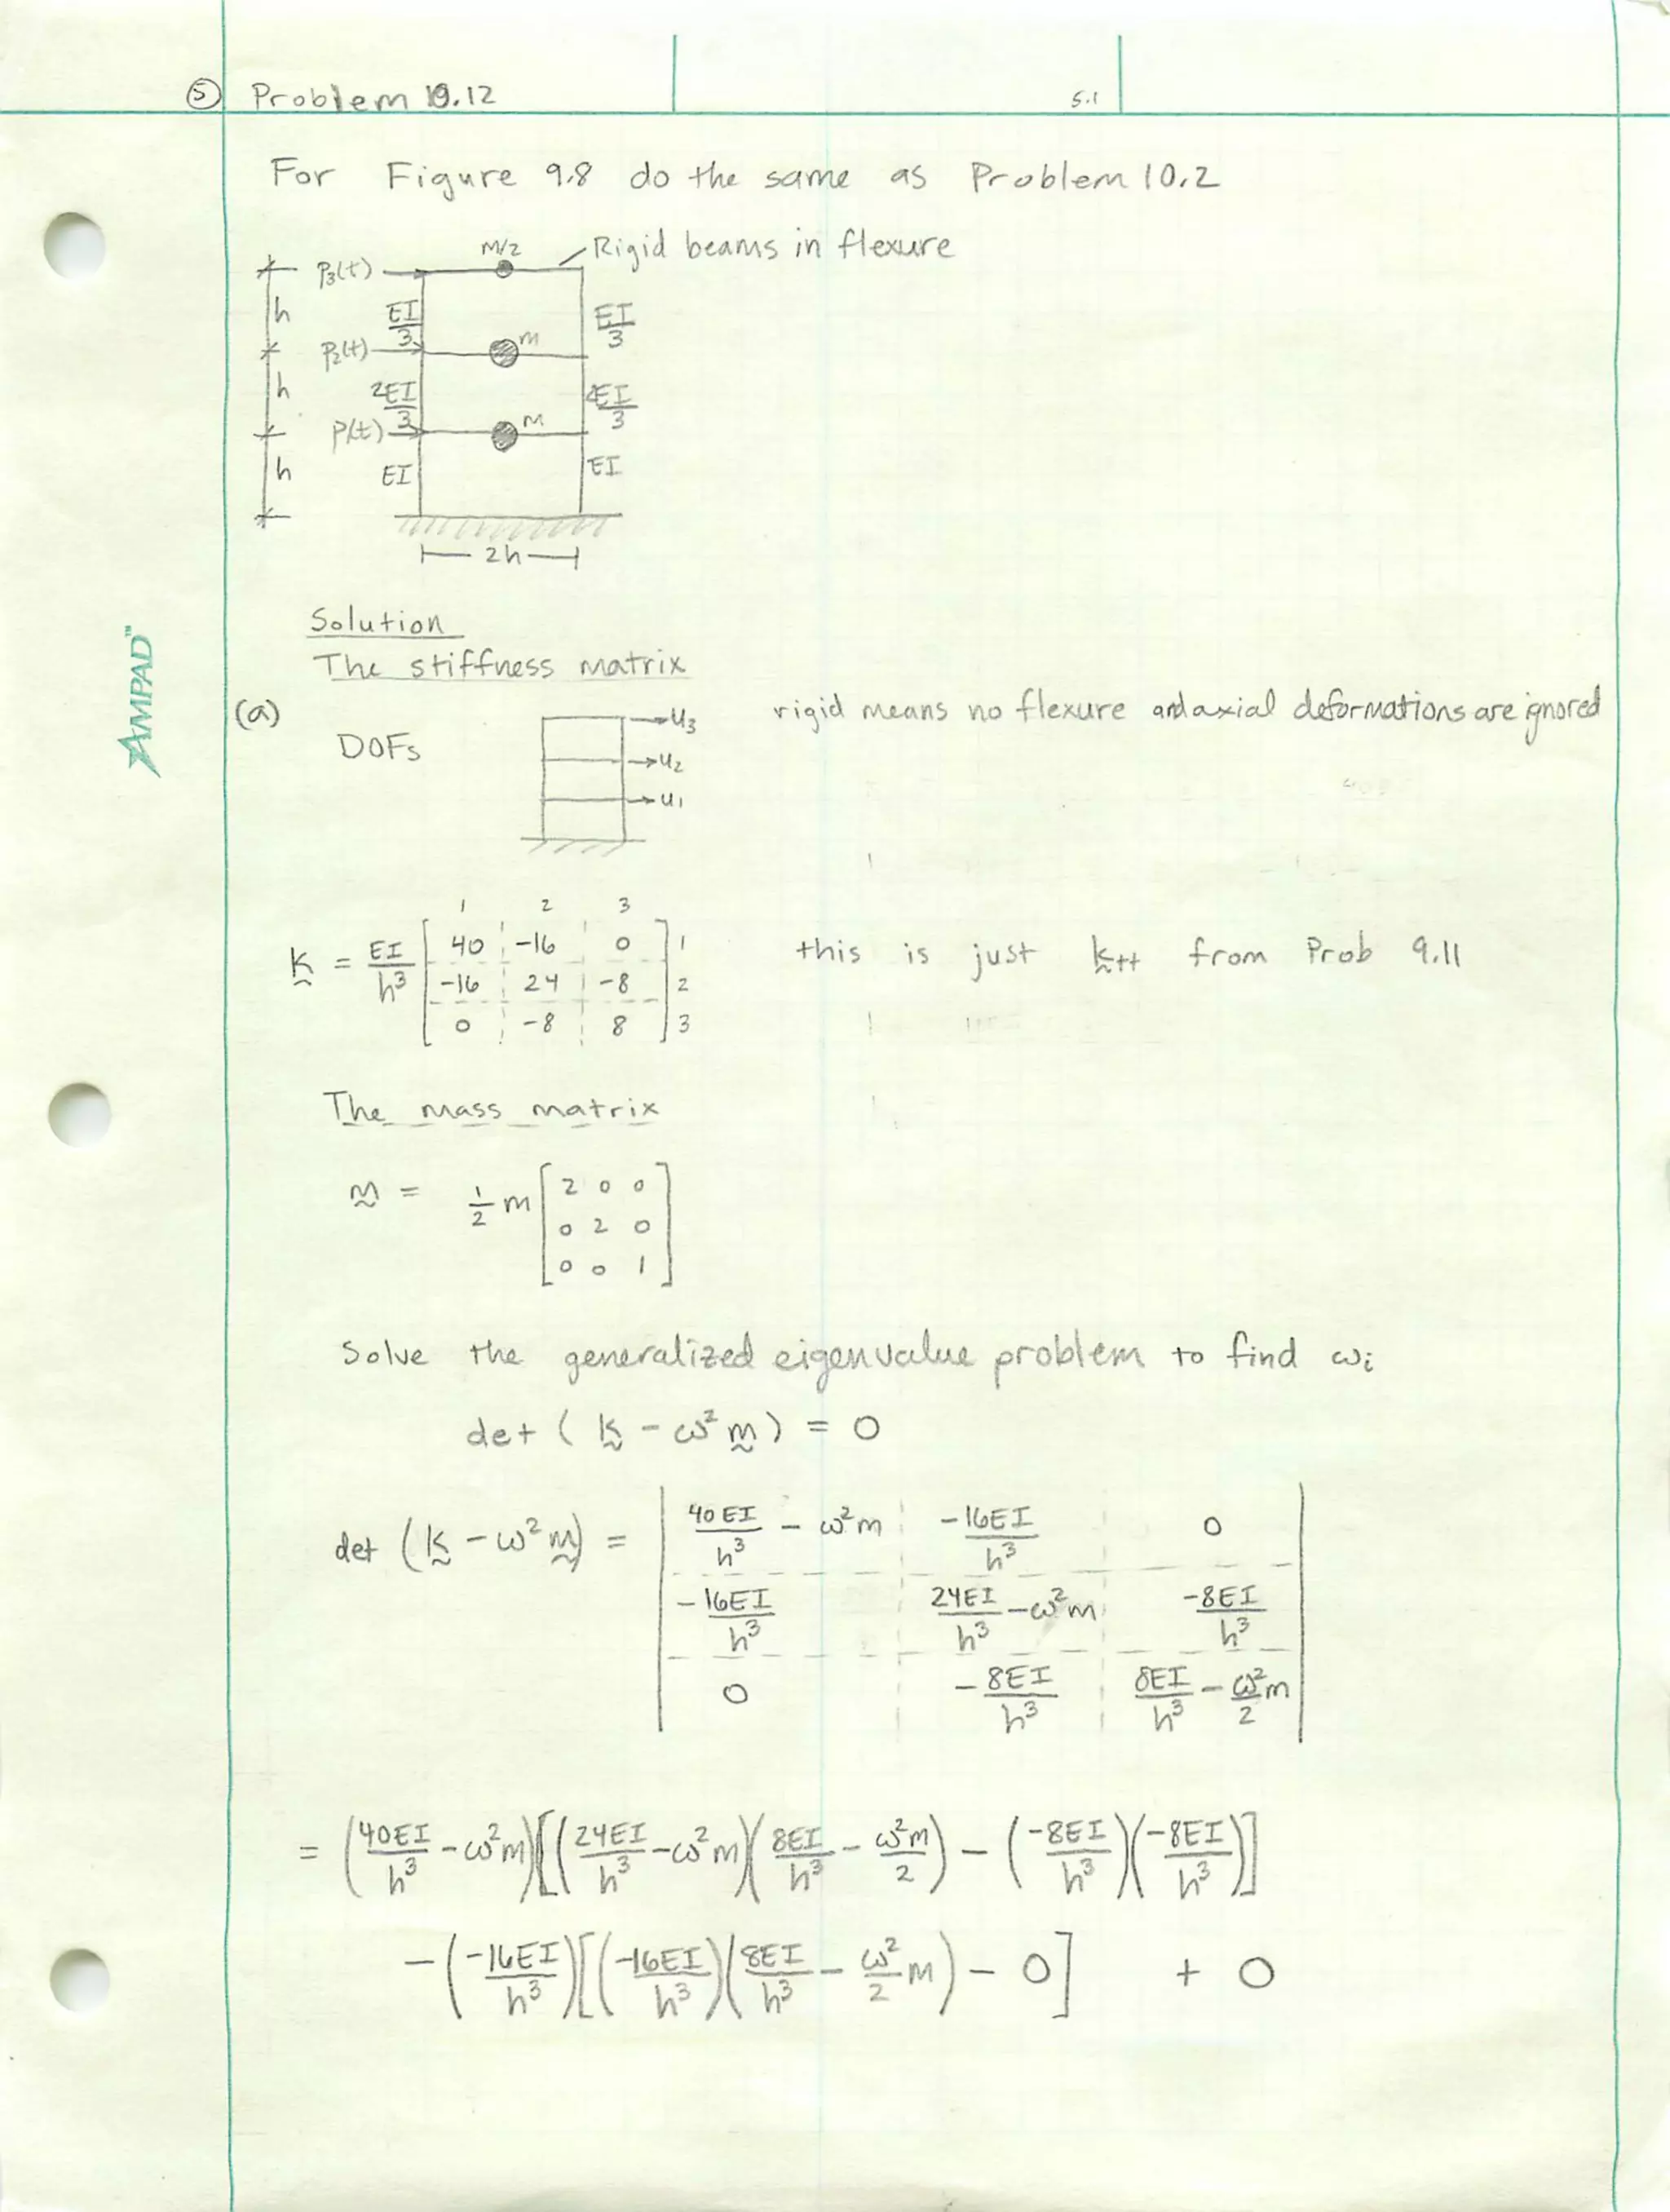 ⑤ Problem 10.12 5.1
For Figure 9.8 do the same as Problem 10.2
m/2 Rigid beams in flexure
P3(t)
h EI/3 EI/3
P2(t) m
h 2EI/3 2EI/3
P(t) m
h EI EI
2h
Solution
The stiffness matrix
(a) u3 rigid means no flexure and axial deformations are ignored
DOFs u2
u1
1 2 3
k = EI/h³ [ 40 -16 0 ] 1 this is just ktt from Prob 9.11
-16 24 -8 2
0 -8 8 3
The mass matrix
m = 1/2 m [ 2 0 0
0 2 0
0 0 1 ]
Solve the generalized eigenvalue problem to find ωi
det ( k - ω² m ) = 0
det ( k - ω² m ) = | 40EI/h³ - ω²m -16EI/h³ 0 |
-16EI/h³ 24EI/h³ - ω²m -8EI/h³
0 -8EI/h³ 8EI/h³ - ω²/2 m
= (40EI/h³ - ω²m)[(24EI/h³ - ω²m)(8EI/h³ - ω²m/2) - (-8EI/h³)(-8EI/h³)]
- (-16EI/h³)[(-16EI/h³)(8EI/h³ - ω²/2 m) - 0] + 0
AMPAD™